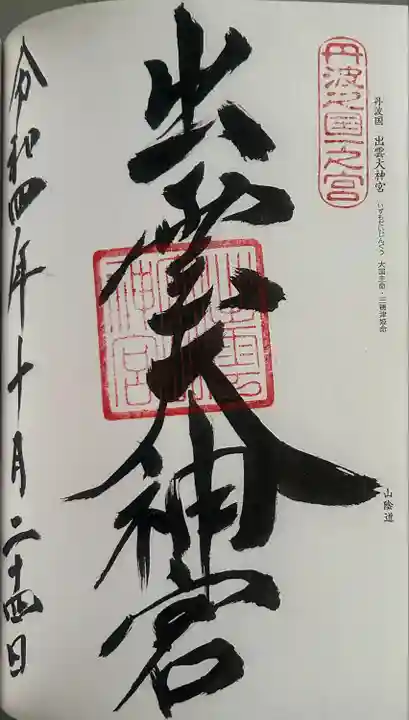 丹波国一之宮
丹波国 出雲大神宮 いずもだいじんぐう 大国主命・三穂津姫命
山陰道
出雲大神宮
出雲大神宮
令和四年十月二十四日